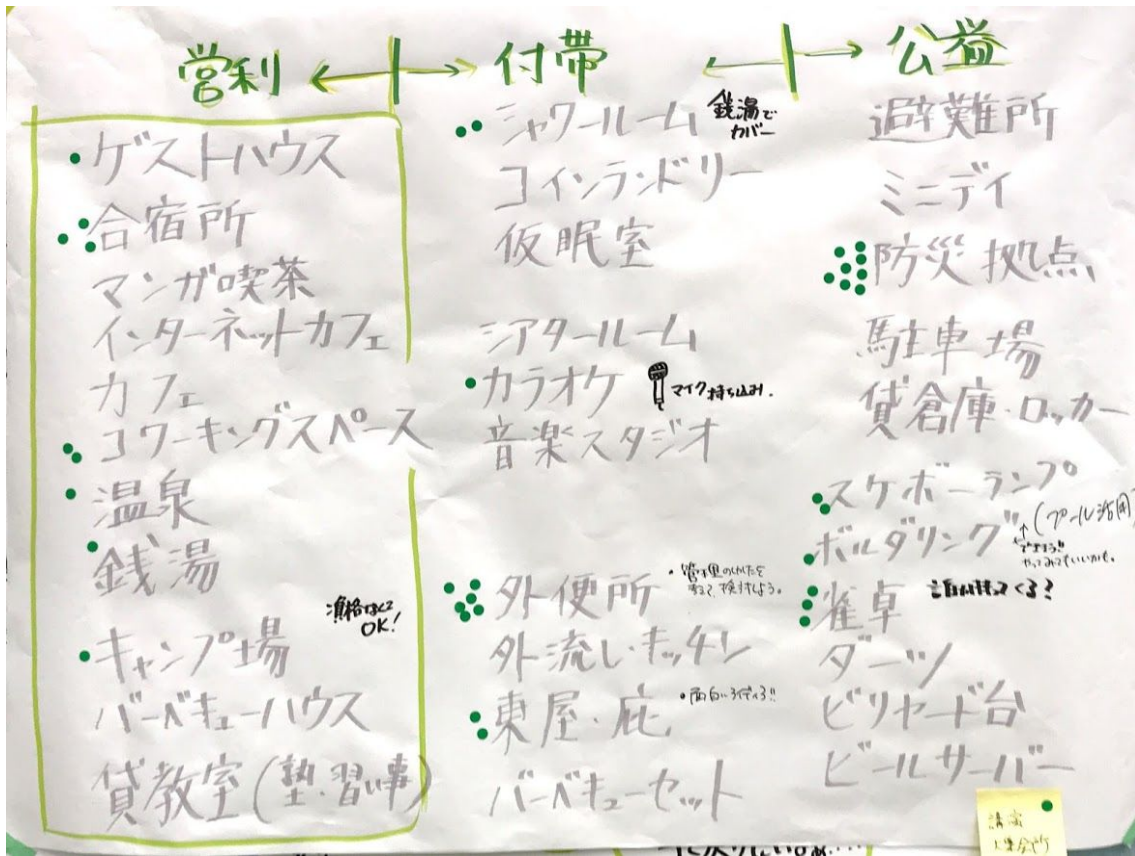 営利 ← | → 付帯 ← | → 公益
・ゲストハウス
合宿所
マンガ喫茶
インターネットカフェ
カフェ
コワーキングスペース
温泉
銭湯
OK!
キャンプ場
バーベキューハウス
貸教室(塾・習い事)
シャワールーム
銭湯で
カバー
コインランドリー
仮眠室
シアタールーム
カラオケ
マイク持ち込み.
音楽スタジオ
外便所
・管理のしかたを
検討しよう。
外流し・キッチン
東屋・庇
バーベキューセット
避難所
ミニデイ
防災拠点
駐車場
貸倉庫・ロッカー
スケボーランプ
(プール活用)
ボルダリング
やってみてもいいかも。
雀卓
誰が持ってくる?
ダーツ
ビリヤード台
ビールサーバー